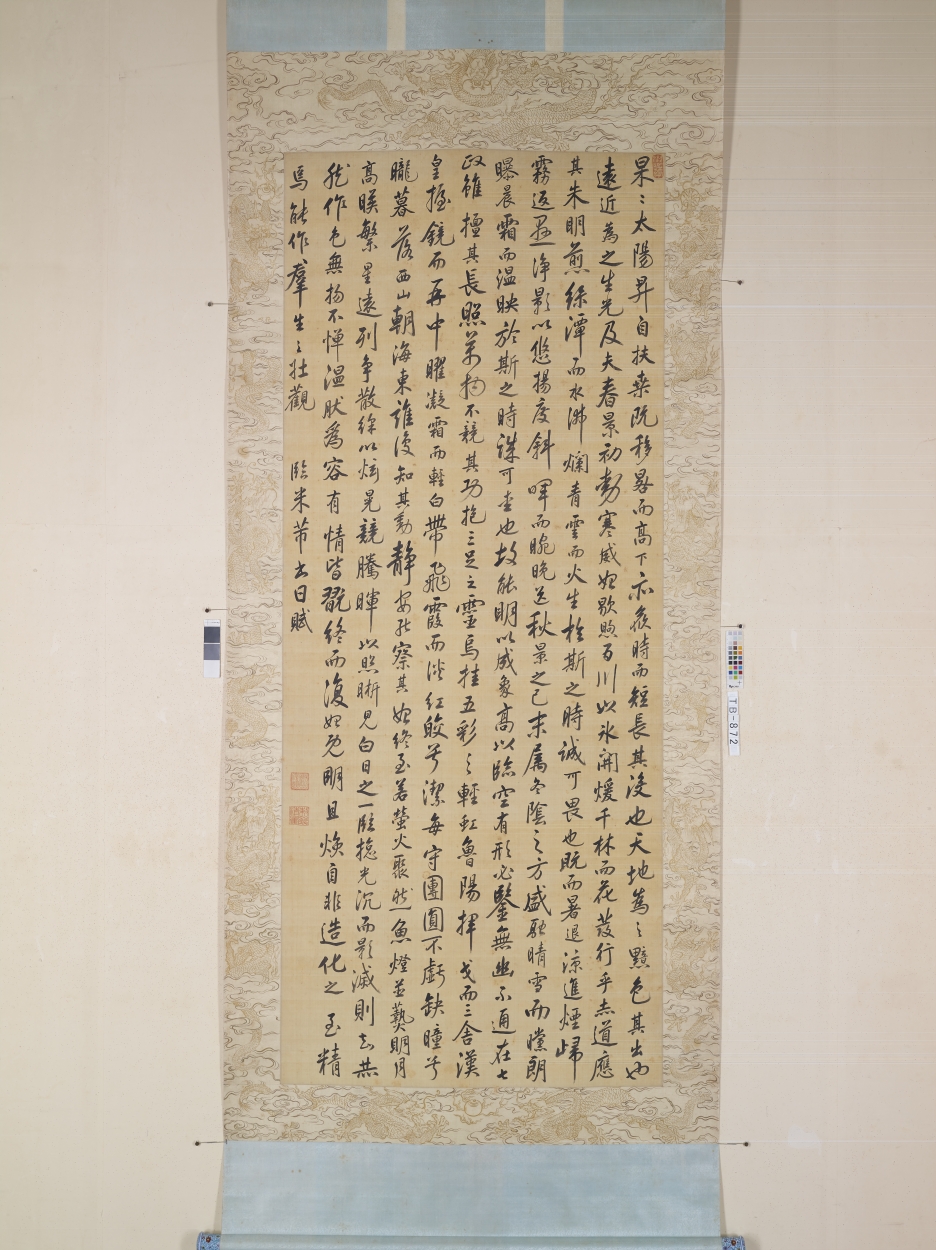 杲〻太陽昇自扶桒既移晷而高下亦候時而短長其没也天地為〻黯色其出也
遠近為之生光及夫春景初動寒威始歇煦百川以氷開煖千林而花發行乎赤道應
其朱明煎綠潭而水沸爛青雲而火生於斯之時誠可畏也既而暑退涼進煙歸
霧返忽浄影以悠揚度斜暉而晼晩迄秋景之已末属冬陰〻方盛融晴雪而曭朗
曝晨霜而温映於斯之時誅可㤅也故能明以威象高以臨空有形必鑒無幽不通在七
政雖擅其長照萬物不競其功抱三足之靈烏挂五彩〻輕虹魯陽揮戈而三舍漢
皇握鏡而再中曜凝霜而輕白帶飛霞而淡紅皎兮潔每守團圓不虧缺曈兮
曨暮落西山朝海東誰復知其動静安能察其始終至若螢火聚然魚燈並爇明月
高暎繁星遠列争散綵以炫晃競騰暉以照晰見白日之一臨揔光沉而影滅則知無
然作色無物不惮温肰爲容有情皆翫終而復始死明且煥自非造化之至精
焉能作羣生〻壮觀
臨米芾書日賦
TB-872